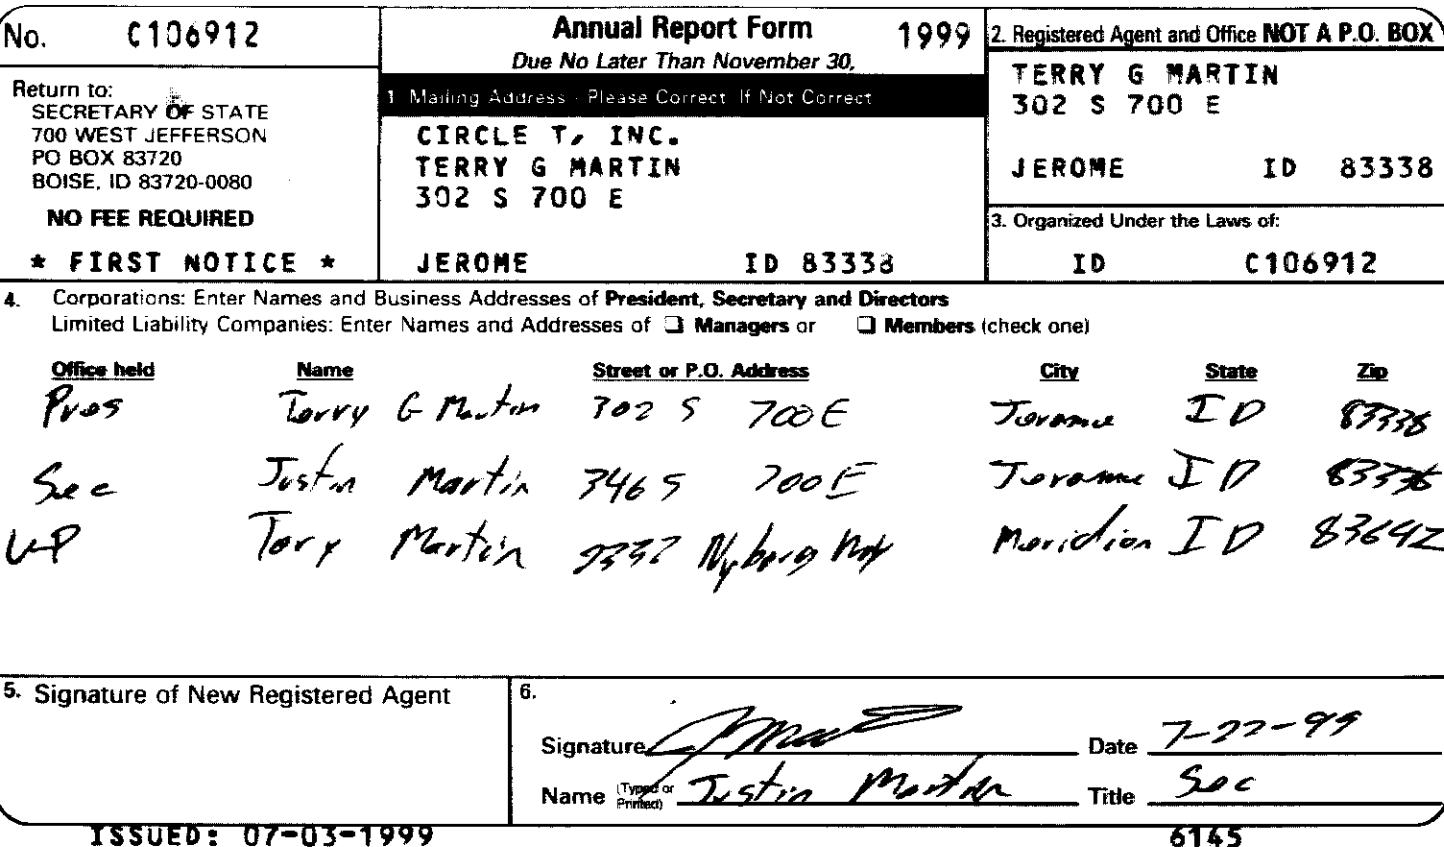 No. C106912
Return to:
SECRETARY OF STATE
700 WEST JEFFERSON
PO BOX 83720
BOISE, ID 83720-0080
NO FEE REQUIRED
* FIRST NOTICE *
Annual Report Form 1999
Due No Later Than November 30,
1 Mailing Address - Please Correct If Not Correct
CIRCLE T, INC.
TERRY G MARTIN
302 S 700 E
JEROME ID 83338
2. Registered Agent and Office NOT A P.O. BOX
TERRY G MARTIN
302 S 700 E
JEROME ID 83338
3. Organized Under the Laws of:
ID C106912
4. Corporations: Enter Names and Business Addresses of President, Secretary and Directors
Limited Liability Companies: Enter Names and Addresses of ❑ Managers or ❑ Members (check one)
Office held Name Street or P.O. Address City State Zip
Pres Terry G Martin 302 S 700 E Jerome ID 83338
Sec Justin Martin 346 S 700 E Jerome ID 83338
V-P Tory Martin Nyborg Way Meridian ID 83642
5. Signature of New Registered Agent
6.
Signature Date 7-22-99
Name (Typed or Printed) Justin Martin Title Sec
ISSUED: 07-03-1999 6145